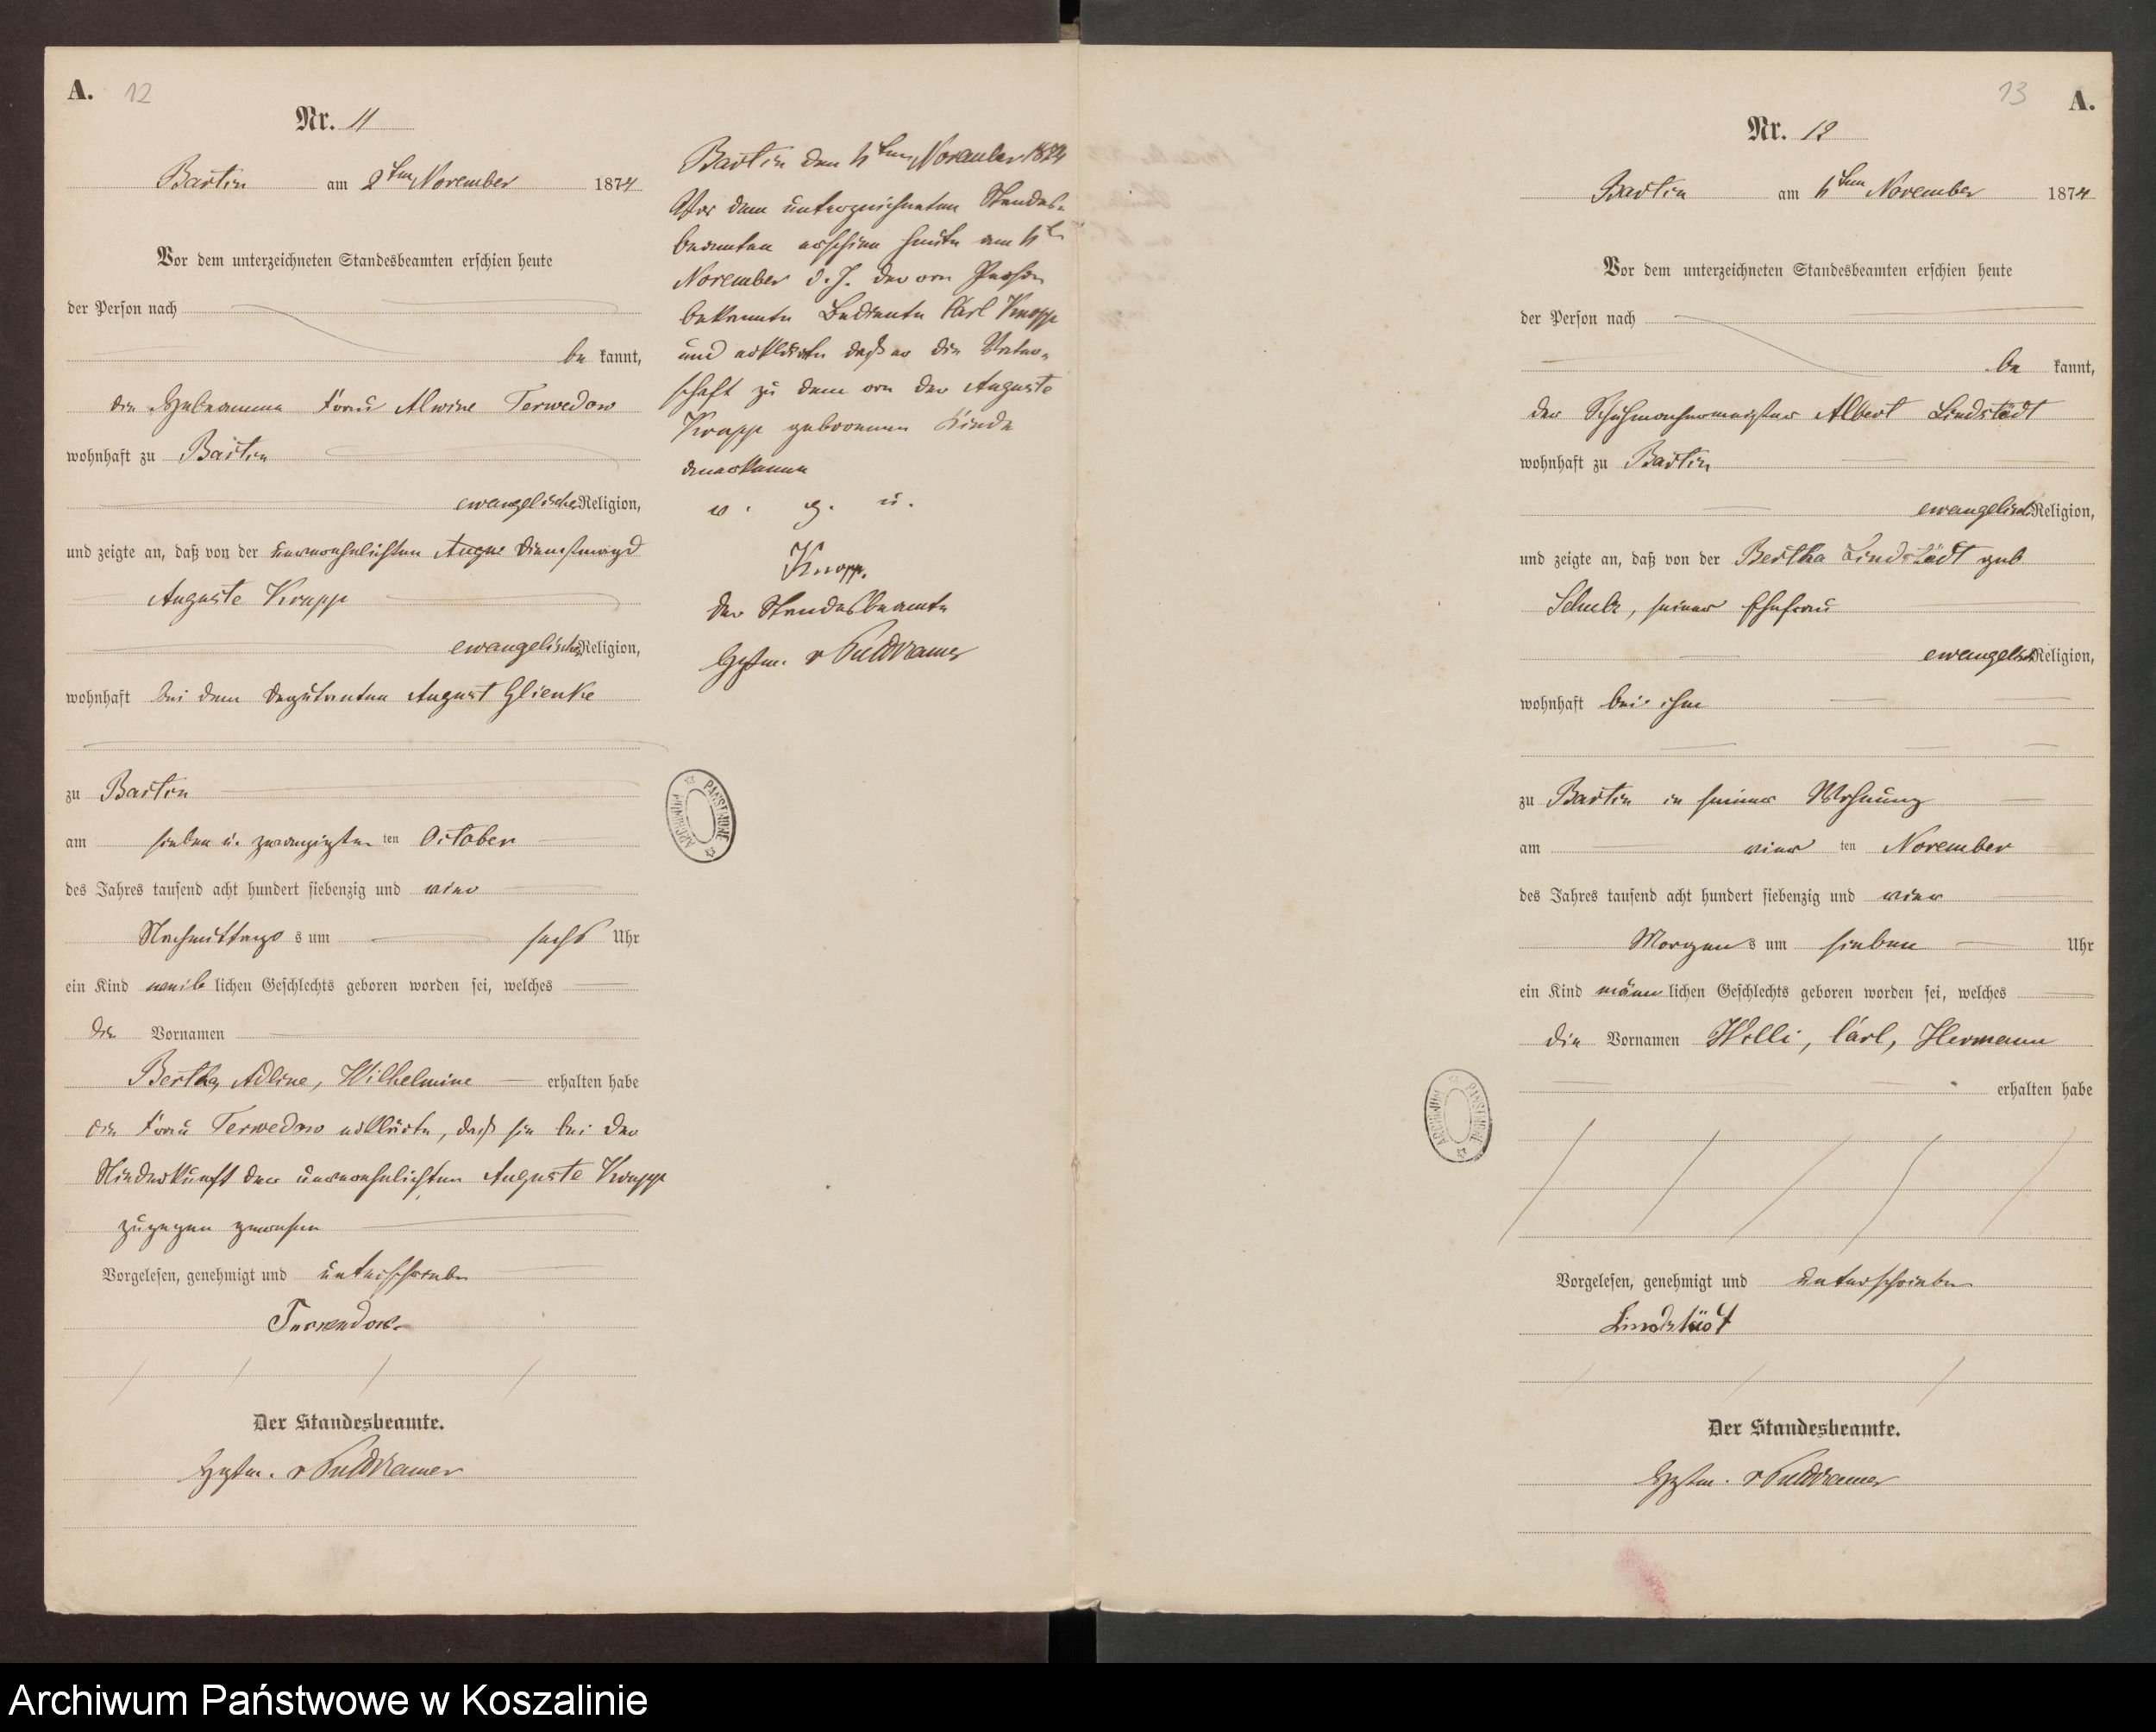 A. 12
Nr. 11
Bartin am 2ten November 1874
Vor dem unterzeichneten Standesbeamten erschien heute
der Person nach
be kannt,
die Hebeamme Frau Alwine Terwedow
wohnhaft zu Bartin
ewangelischer Religion,
und zeigte an, daß von der unverehelichten Augus Dienstmagd
Auguste Krupp
ewangelischer Religion,
wohnhaft bei dem Deputanten August Glienke
zu Bartin
am sieben u. zwanzigsten ten October
des Jahres tausend acht hundert siebenzig und vier
Nachmittags s um sechs Uhr
ein Kind weib lichen Geschlechts geboren worden sei, welches
die Vornamen
Bertha, Adline, Wilhelmine erhalten habe
die Frau Terwedow erklärte, daß sie bei der
Niederkunft der unverehelichten Auguste Krupp
zugegen gewesen
Vorgelesen, genehmigt und unterschrieben
Terwedow
Der Standesbeamte.
v Puttkamer
Bartin den 4ten November 1874
Vor dem unterzeichneten Standes-
beamten erschien heute am 4ten
November d. J. der von Person
bekannte Bediente Carl Knopp
und erklärte daß er die Vater-
schaft zu dem von der Auguste
Krupp geborenen Kinde
anerkenne
v. g. u.
Knopp.
Der Standesbeamte
v Puttkamer
ARCHIWUM PAŃSTWOWE
13 A.
Nr. 12
Bartin am 4ten November 1874
Vor dem unterzeichneten Standesbeamten erschien heute
der Person nach
be kannt,
der Schuhmachermeister Albert Lindstädt
wohnhaft zu Bartin
ewangelisch Religion,
und zeigte an, daß von der Bertha Lindstädt geb
Schulz, seiner Ehefrau
ewangelisch Religion,
wohnhaft bei ihm
zu Bartin in seiner Wohnung
am vier ten November
des Jahres tausend acht hundert siebenzig und vier
Morgen s um sieben Uhr
ein Kind männ lichen Geschlechts geboren worden sei, welches
die Vornamen Willi, Carl, Hermann
erhalten habe
ARCHIWUM PAŃSTWOWE
Vorgelesen, genehmigt und unterschrieben
Lindstädt
Der Standesbeamte.
v Puttkamer
Archiwum Państwowe w Koszalinie